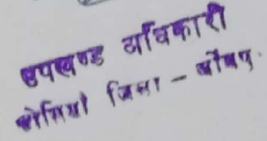 उपखण्ड अधिकारी
ओसियाँ जिला - जोधपु